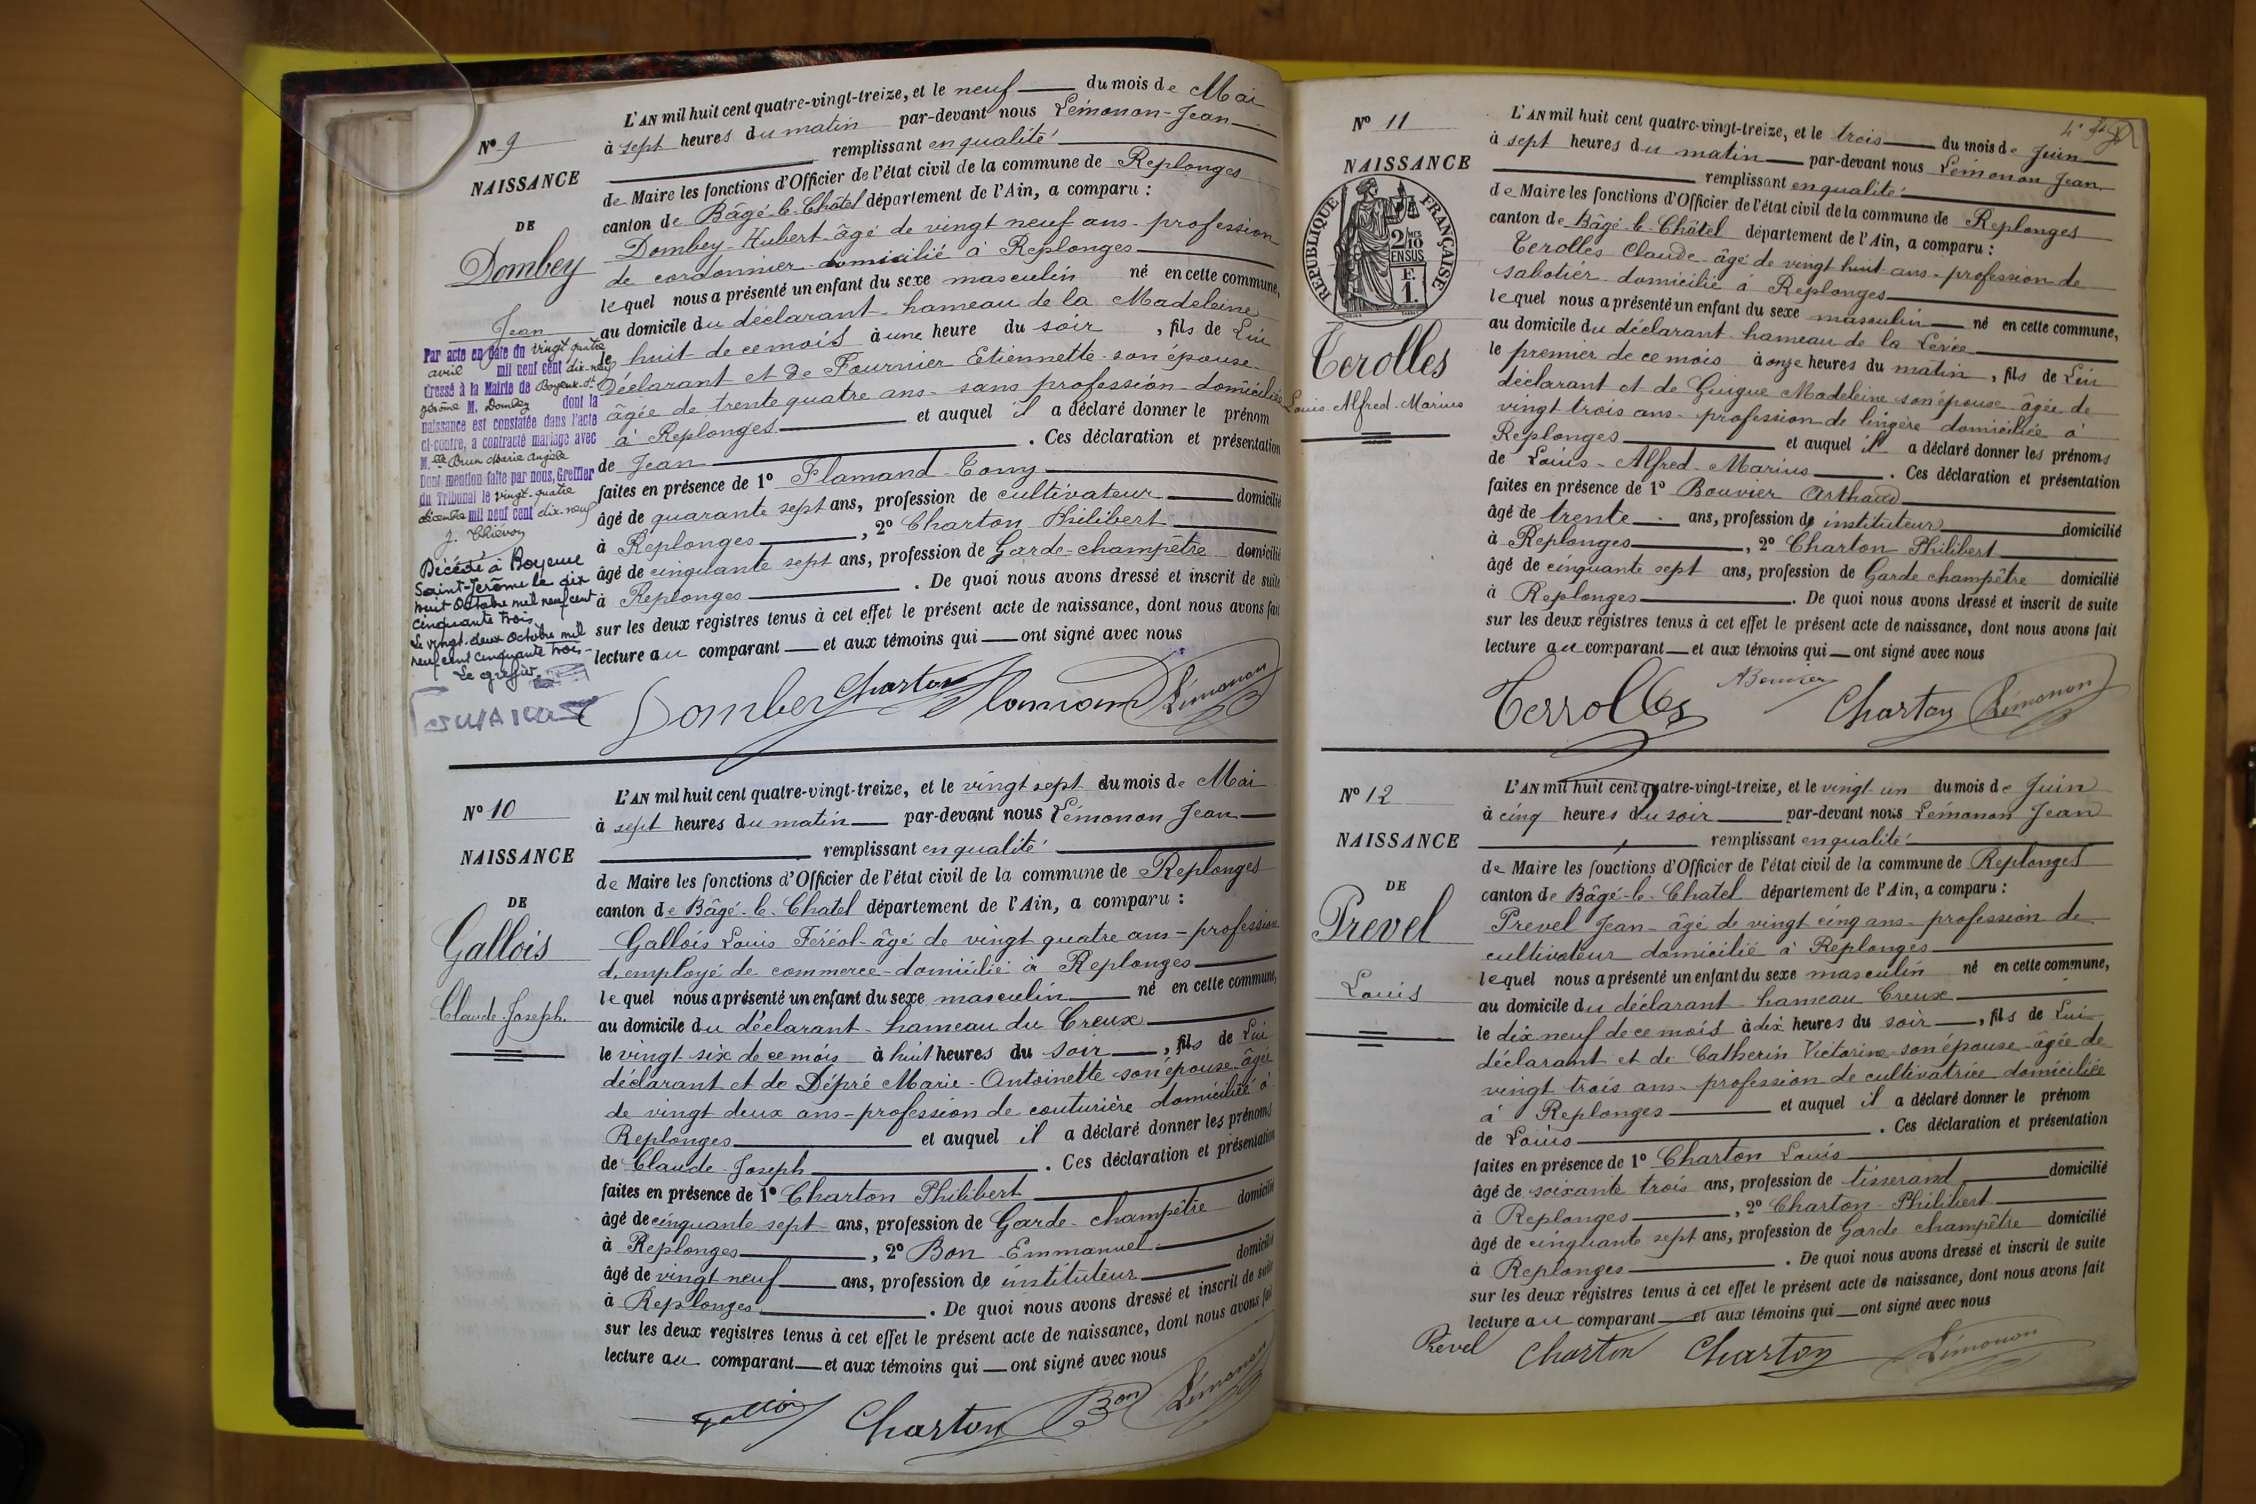 N° 9
NAISSANCE
DE
Dombey
Jean
Par acte en date du vingt quatre
avril mil neuf cent dix-neuf
dressé à la Mairie de Boyeux-St-
Jérôme M. Dombey dont la
naissance est constatée dans l'acte
ci-contre, a contracté mariage avec
M.elle Brun Marie Angèle
Dont mention faite par nous, Greffier
du Tribunal le vingt-quatre
décembre mil neuf cent dix-neuf
Décédé à Boyeux
Saint-Jérôme le dix
huit Octobre mil neuf cent
cinquante trois
Le vingt-deux Octobre mil
neuf cent cinquante trois-
Le greffier
L'AN mil huit cent quatre-vingt-treize, et le neuf du mois de Mai
à sept heures du matin par-devant nous Lémonon-Jean
remplissant en qualité
de Maire les fonctions d'Officier de l'état civil de la commune de Replonges
canton de Bâgé-le-Châtel département de l'Ain, a comparu :
Dombey-Hubert-âgé de vingt neuf ans-profession
de cordonnier domicilié à Replonges
lequel nous a présenté un enfant du sexe masculin né en cette commune,
au domicile du déclarant-hameau de la Madeleine
le huit de ce mois à une heure du soir, fils de Lui
Déclarant et de Fournier Etiennette-son épouse-
âgée de trente quatre ans-sans profession-domiciliée
à Replonges et auquel il a déclaré donner le prénom
de Jean. Ces déclaration et présentation
faites en présence de 1° Flamand-Tony
âgé de quarante sept ans, profession de cultivateur domicilié
à Replonges, 2° Charton Philibert
âgé de cinquante sept ans, profession de Garde-champêtre domicilié
à Replonges. De quoi nous avons dressé et inscrit de suite
sur les deux registres tenus à cet effet le présent acte de naissance, dont nous avons fait
lecture au comparant et aux témoins qui ont signé avec nous
Dombey Charton Flamand Lémonon
N° 10
NAISSANCE
DE
Gallois
Claude-Joseph
L'AN mil huit cent quatre-vingt-treize, et le vingt sept du mois de Mai
à sept heures du matin par-devant nous Lémonon Jean
remplissant en qualité
de Maire les fonctions d'Officier de l'état civil de la commune de Replonges
canton de Bâgé-le-Chatel département de l'Ain, a comparu :
Gallois Louis Féréol-âgé de vingt quatre ans-profession
d'employé de commerce-domicilié à Replonges
lequel nous a présenté un enfant du sexe masculin né en cette commune,
au domicile du déclarant-hameau du Creux
le vingt-six de ce mois à huit heures du soir, fils de Lui
déclarant et de Dépré Marie-Antoinette son épouse âgée
de vingt deux ans-profession de couturière domiciliée à
Replonges et auquel il a déclaré donner les prénoms
de Claude-Joseph. Ces déclaration et présentation
faites en présence de 1° Charton Philibert
âgé de cinquante sept ans, profession de Garde-champêtre domicilié
à Replonges, 2° Bon Emmanuel
âgé de vingt neuf ans, profession de instituteur domicilié
à Replonges. De quoi nous avons dressé et inscrit de suite
sur les deux registres tenus à cet effet le présent acte de naissance, dont nous avons fait
lecture au comparant et aux témoins qui ont signé avec nous
Gallois Charton Bon Lémonon
N° 11
NAISSANCE
RÉPUBLIQUE FRANÇAISE
2/10 MES
EN SUS
F.
1.
Terolles
Louis-Alfred-Marius
L'AN mil huit cent quatre-vingt-treize, et le trois du mois de Juin
à sept heures du matin par-devant nous Lémonon Jean
remplissant en qualité
de Maire les fonctions d'Officier de l'état civil de la commune de Replonges
canton de Bâgé-le-Châtel département de l'Ain, a comparu :
Terolles Claude-âgé de vingt huit ans-profession de
sabotier domicilié à Replonges
lequel nous a présenté un enfant du sexe masculin né en cette commune,
au domicile du déclarant hameau de la Levée
le premier de ce mois à onze heures du matin, fils de Lui
déclarant et de Guigue Madeleine son épouse âgée de
vingt trois ans-profession de lingère domiciliée à
Replonges et auquel il a déclaré donner les prénoms
de Louis-Alfred-Marius. Ces déclaration et présentation
faites en présence de 1° Bouvier Arthaud
âgé de trente ans, profession de instituteur domicilié
à Replonges, 2° Charton Philibert
âgé de cinquante sept ans, profession de Garde champêtre domicilié
à Replonges. De quoi nous avons dressé et inscrit de suite
sur les deux registres tenus à cet effet le présent acte de naissance, dont nous avons fait
lecture au comparant et aux témoins qui ont signé avec nous
Terrolles ABouvier Charton Lémonon
N° 12
NAISSANCE
DE
Prevel
Louis
L'AN mil huit cent quatre-vingt-treize, et le vingt-un du mois de Juin
à cinq heures du soir par-devant nous Lémonon Jean
remplissant en qualité
de Maire les fonctions d'Officier de l'état civil de la commune de Replonges
canton de Bâgé-le-Chatel département de l'Ain, a comparu :
Prevel Jean-âgé de vingt cinq ans-profession de
cultivateur domicilié à Replonges
lequel nous a présenté un enfant du sexe masculin né en cette commune,
au domicile du déclarant-hameau Creux
le dix neuf de ce mois à dix heures du soir, fils de Lui
déclarant et de Catherin Victorine-son épouse-âgée de
vingt trois ans-profession de cultivatrice domiciliée
à Replonges et auquel il a déclaré donner le prénom
de Louis. Ces déclaration et présentation
faites en présence de 1° Charton Louis
âgé de soixante trois ans, profession de tisserand domicilié
à Replonges, 2° Charton-Philibert
âgé de cinquante sept ans, profession de Garde champêtre domicilié
à Replonges. De quoi nous avons dressé et inscrit de suite
sur les deux registres tenus à cet effet le présent acte de naissance, dont nous avons fait
lecture au comparant et aux témoins qui ont signé avec nous
Prevel Charton Charton Lémonon